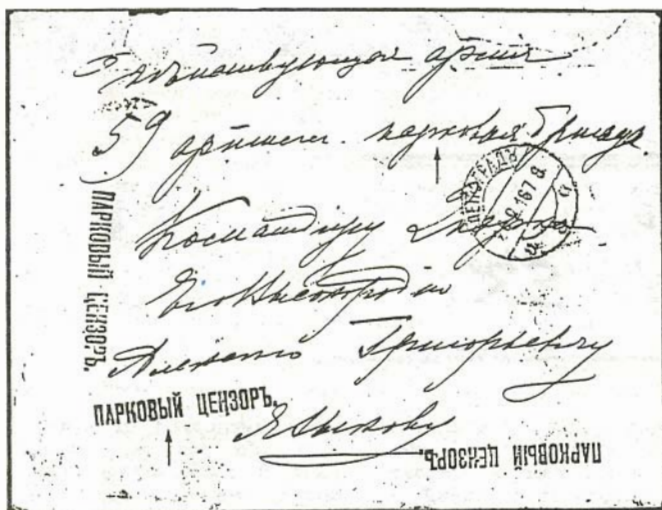 Дѣйствующая армія
59 артилл. парковая бригада
Командиру
Его Высокородію
Григорьевичу
Языкову
ПАРКОВЫЙ ЦЕНЗОРЪ.
ПАРКОВЫЙ ЦЕНЗОРЪ.
ПАРКОВЫЙ ЦЕНЗОРЪ.